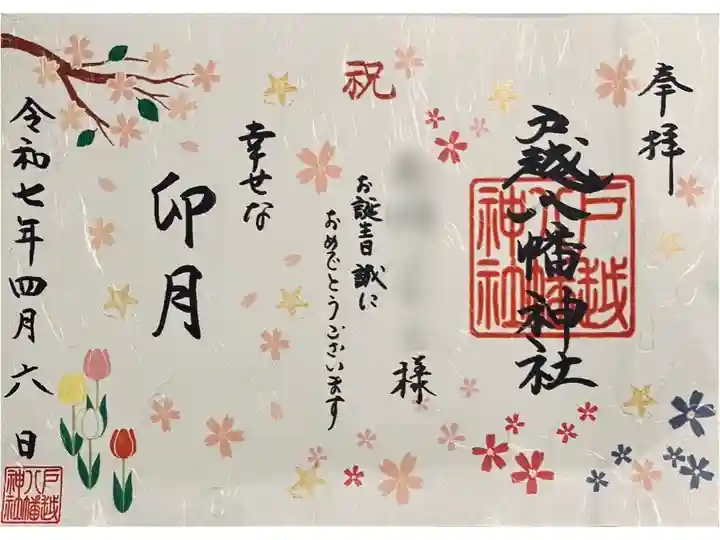 奉拝
戸越八幡神社
戸越
八幡
神社
祝
様
お誕生日誠に
おめでとうございます
幸せな
卯月
令和七年四月六日
戸越
八幡
神社